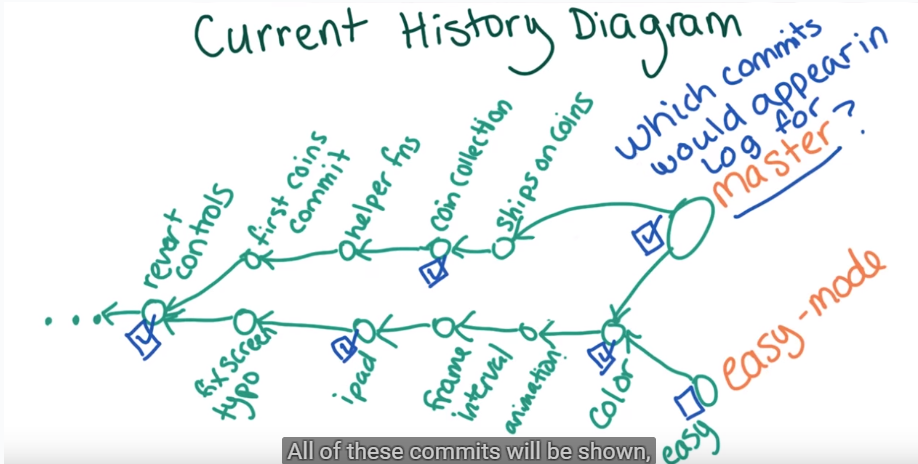 Current History Diagram
which commits
would appear in
log for
master?
revert
controls
first coins
commit
helper fns
coin collection
ships on coins
fix screen
typo
ipad
frame
interval
animation
color
easy
easy-mode
All of these commits will be shown,